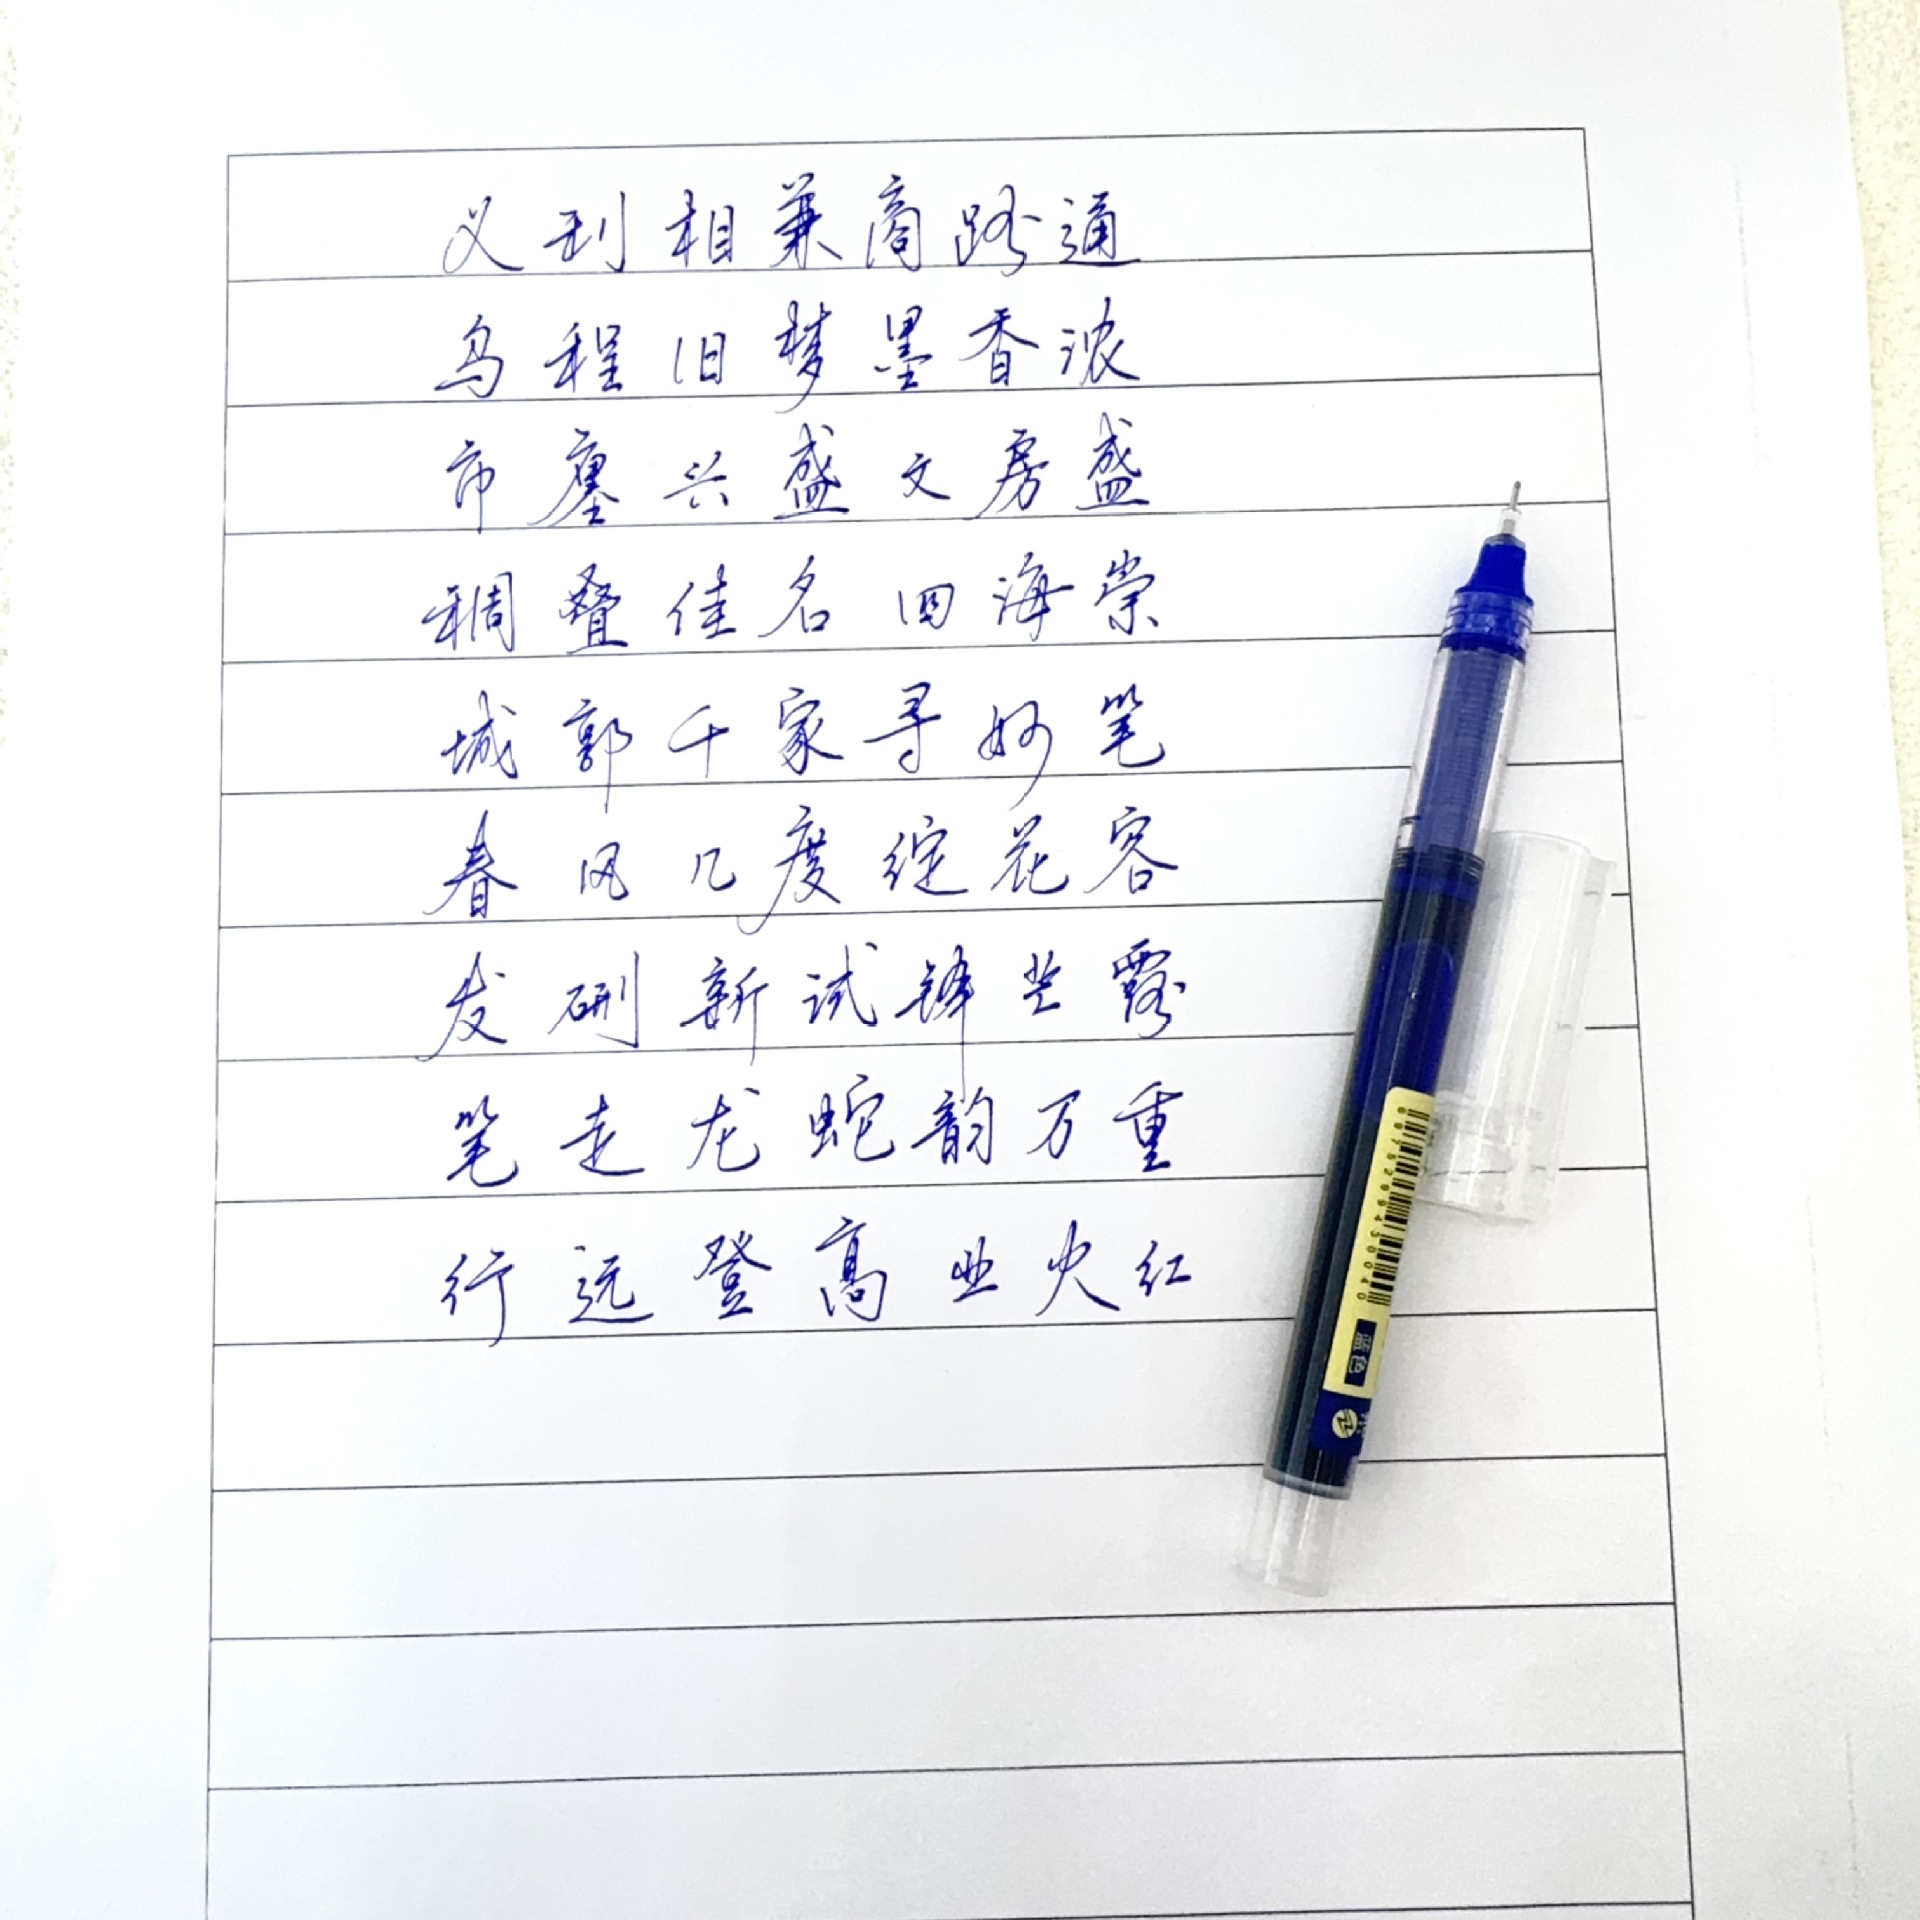 义利相兼商路通
乌程旧梦墨香浓
市廛兴盛文房盛
稠叠佳名四海崇
城郭千家寻妙笔
春风几度绽花容
发硎新试锋芒露
笔走龙蛇韵万重
行远登高业火红
6975299430040
蓝色